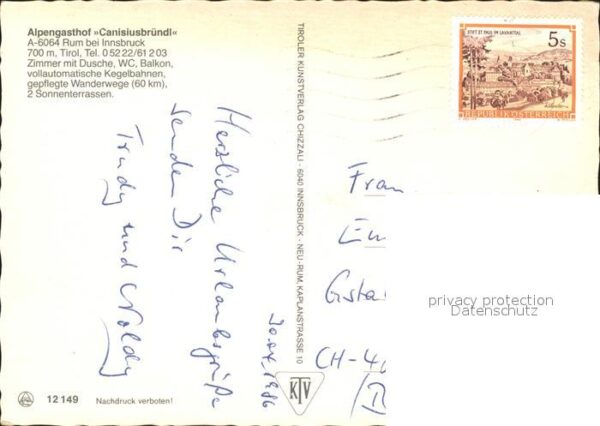 Alpengasthof »Canisiusbründl«
A-6064 Rum bei Innsbruck
700 m, Tirol, Tel. 0 52 22/61 2 03
Zimmer mit Dusche, WC, Balkon,
vollautomatische Kegelbahnen,
gepflegte Wanderwege (60 km),
2 Sonnenterrassen.
Herzliche Urlaubsgrüße
senden Dir
Trudy und Noldy
TIROLER KUNSTVERLAG CHIZZALI · 6040 INNSBRUCK - NEU-RUM, KAPLANSTRASSE 10
KTV
STIFT ST. PAUL IM LAVANTTAL
5 S
REPUBLIK ÖSTERREICH
Frau
CH-40
privacy protection
Datenschutz
12 149
Nachdruck verboten!